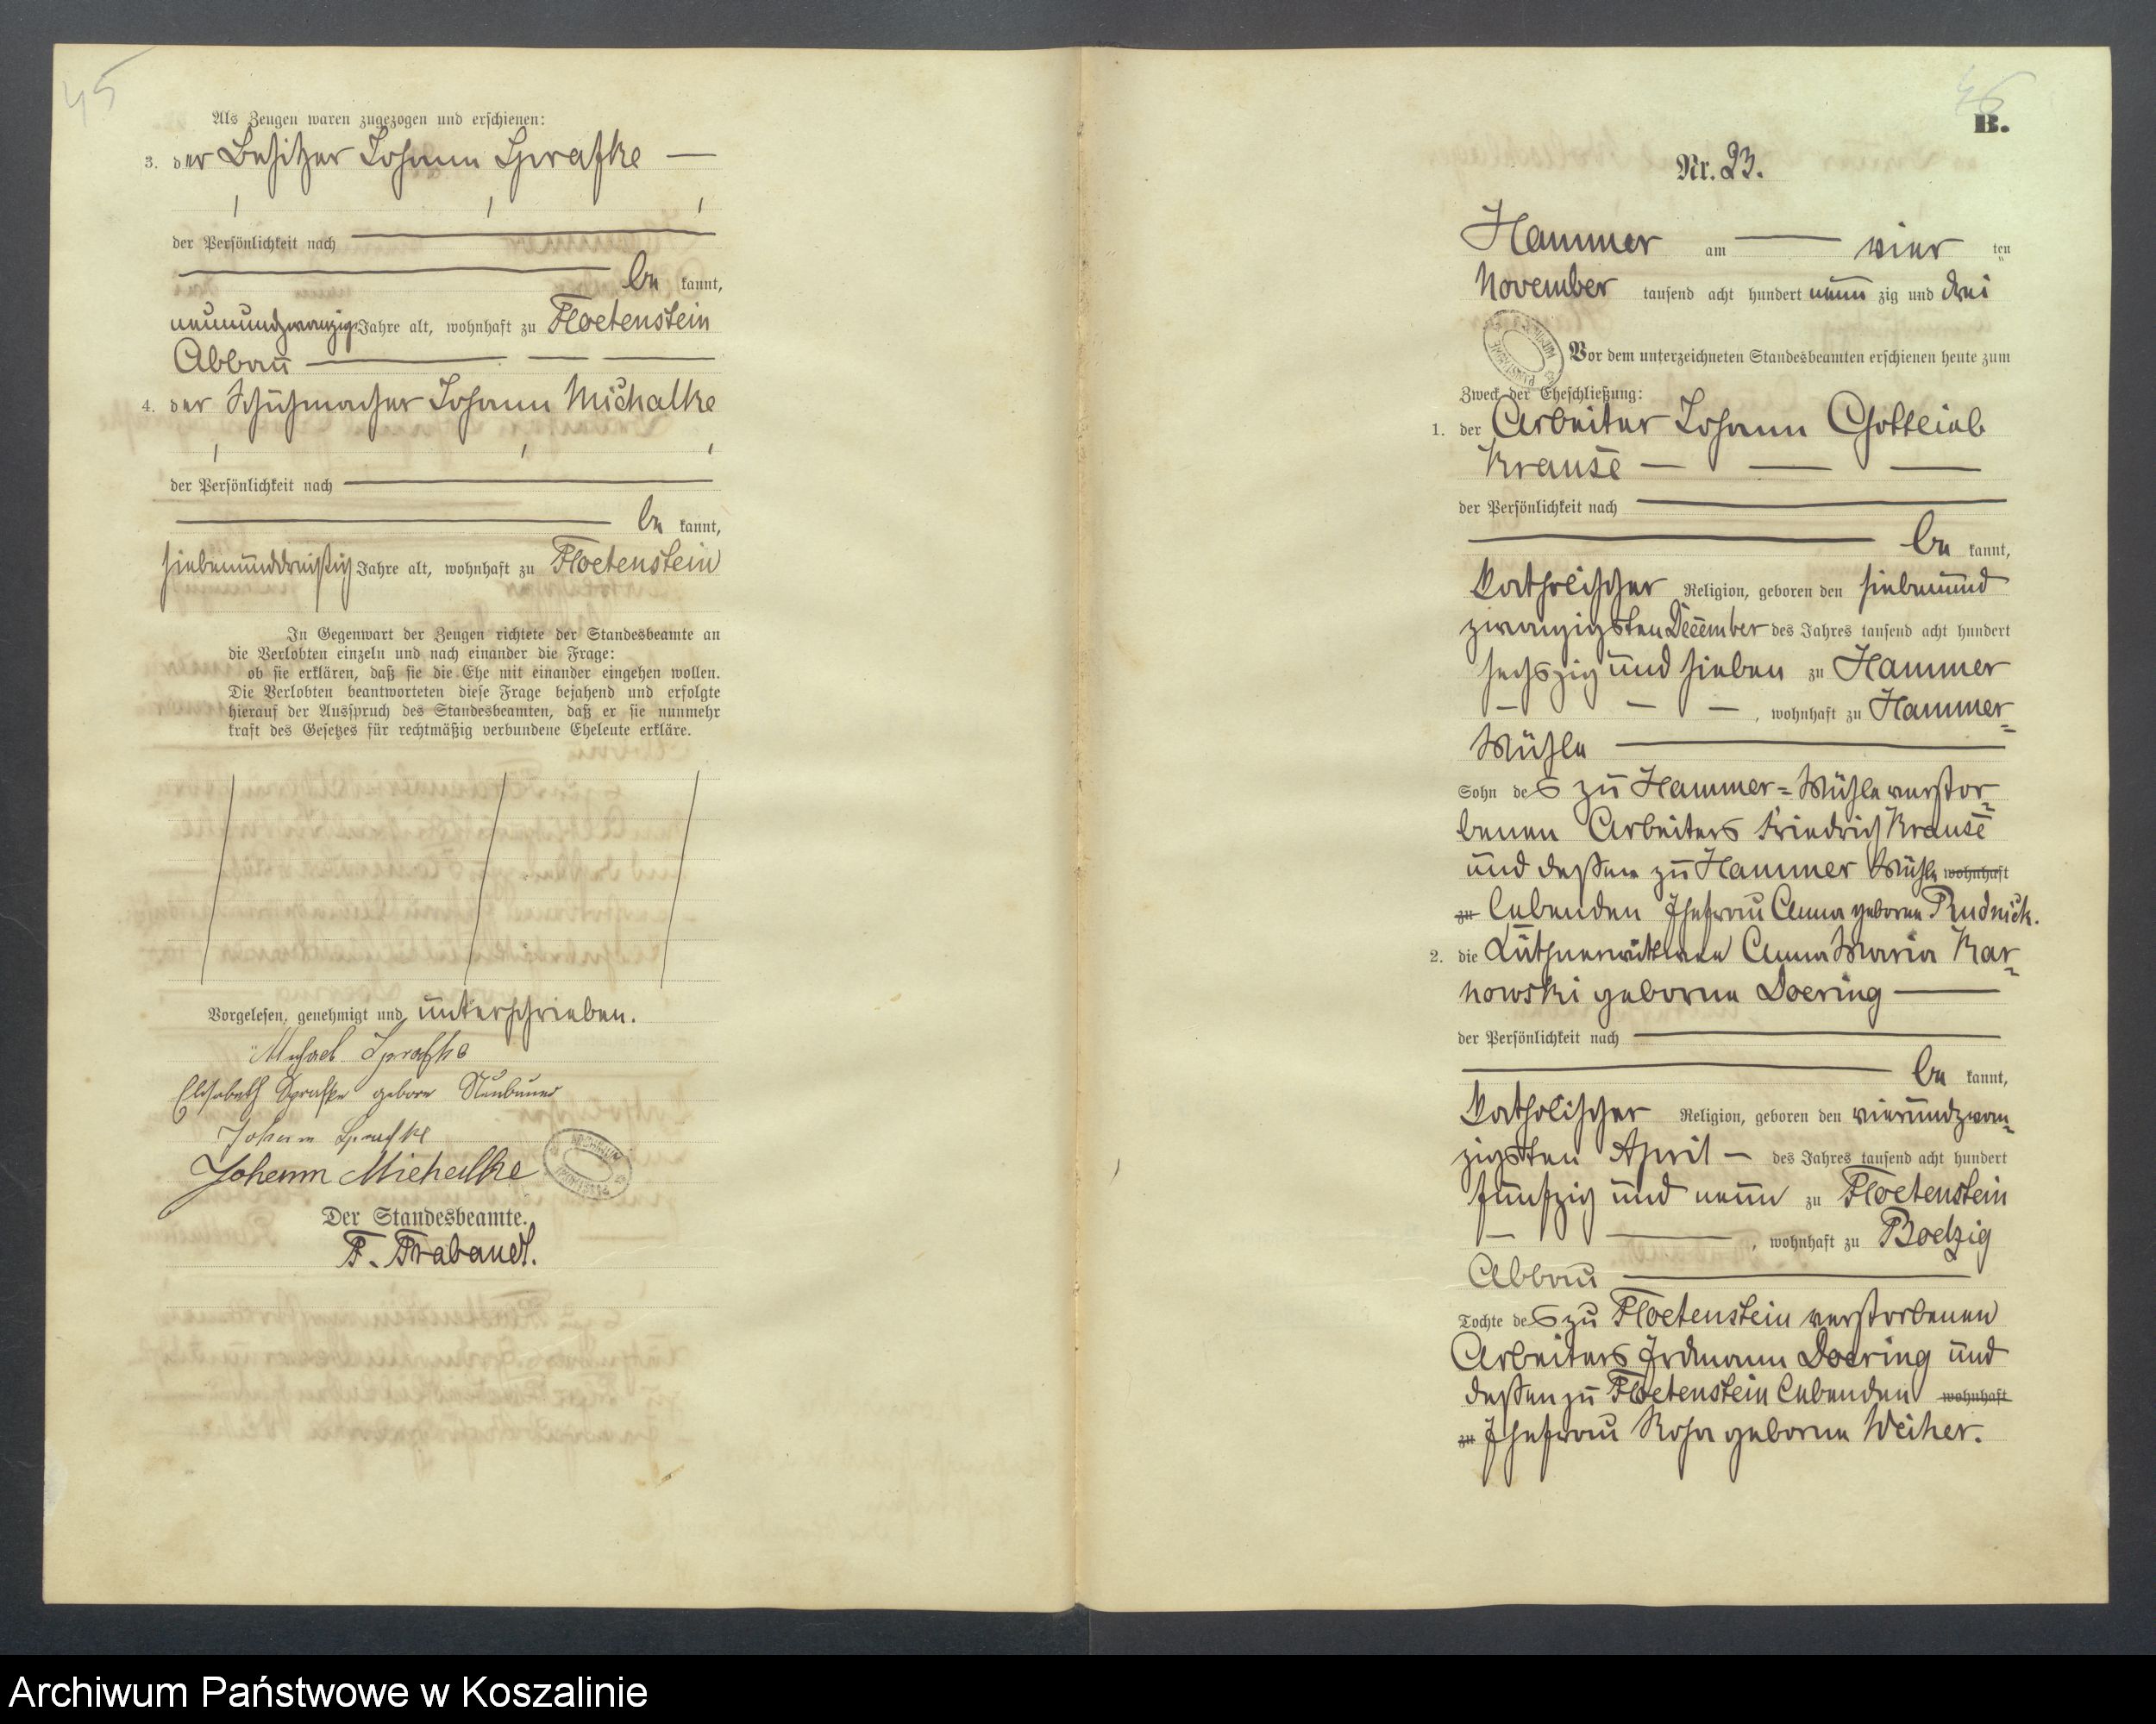 45
Als Zeugen waren zugezogen und erschienen:
3. der Besitzer Johann Sprafke —
der Persönlichkeit nach
be kannt,
neunundzwanzig Jahre alt, wohnhaft zu Floetenstein
Abbau
4. der Schuhmacher Johann Michalke
der Persönlichkeit nach
be kannt,
siebenunddreißig Jahre alt, wohnhaft zu Floetenstein
In Gegenwart der Zeugen richtete der Standesbeamte an
die Verlobten einzeln und nach einander die Frage:
ob sie erklären, daß sie die Ehe mit einander eingehen wollen.
Die Verlobten beantworteten diese Frage bejahend und erfolgte
hierauf der Ausspruch des Standesbeamten, daß er sie nunmehr
kraft des Gesetzes für rechtmäßig verbundene Eheleute erkläre.
Vorgelesen, genehmigt und unterschrieben.
Michael Sprafke
Elisabeth Sprafke geborne Neubauer
Johann Sprafke
Johann Michalke
Der Standesbeamte.
F. Trabandt.
46
B.
Nr. 23.
Hammer am — vier ten
November tausend acht hundert neun zig und drei
Vor dem unterzeichneten Standesbeamten erschienen heute zum
Zweck der Eheschließung:
1. der Arbeiter Johann Gottlieb
Krause — — —
der Persönlichkeit nach
be kannt,
katholischer Religion, geboren den siebenund
zwanzigsten December des Jahres tausend acht hundert
sechszig und sieben zu Hammer
— — — , wohnhaft zu Hammer=
Mühle
Sohn des zu Hammer=Mühle verstor=
benen Arbeiters Friedrich Krause
und dessen zu Hammer Mühle wohnhaft
zu lebenden Ehefrau Anna geborne Rudnick.
2. die Büthnerwittwe Anna Maria Kar=
nowski geborne Doering
der Persönlichkeit nach
be kannt,
katholischer Religion, geboren den vierundzwan=
zigsten April — des Jahres tausend acht hundert
fünfzig und neun zu Floetenstein
— — , wohnhaft zu Boedzig
Abbau
Tochte des zu Floetenstein verstorbenen
Arbeiters Erdmann Doering und
dessen zu Floetenstein lebenden wohnhaft
zu Ehefrau Rosa geborne Weiher.
Archiwum Państwowe w Koszalinie